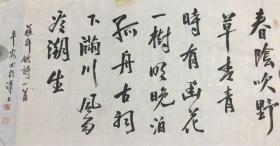 春陰吹野
草青青
時有幽花
一樹明晚泊
孤舟古祠
下滿川風雨
看潮生
蘇舜欽詩一首